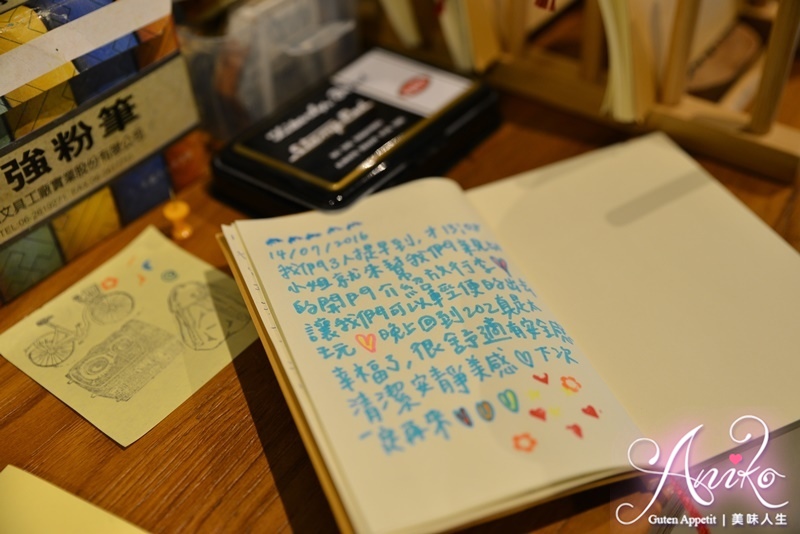 強粉筆
文具工廠實業股份有限公司
14/07/2016
我們3人提早到,才13:00
小姐就來幫我們筆親切
的開門介紹放行李
讓我們可以輕便的出去
玩 晚上回到202真是太
幸福了,很舒適有安全感
清潔安靜美感 下次
一定再來
Aniko
Guten Appetit | 美味人生